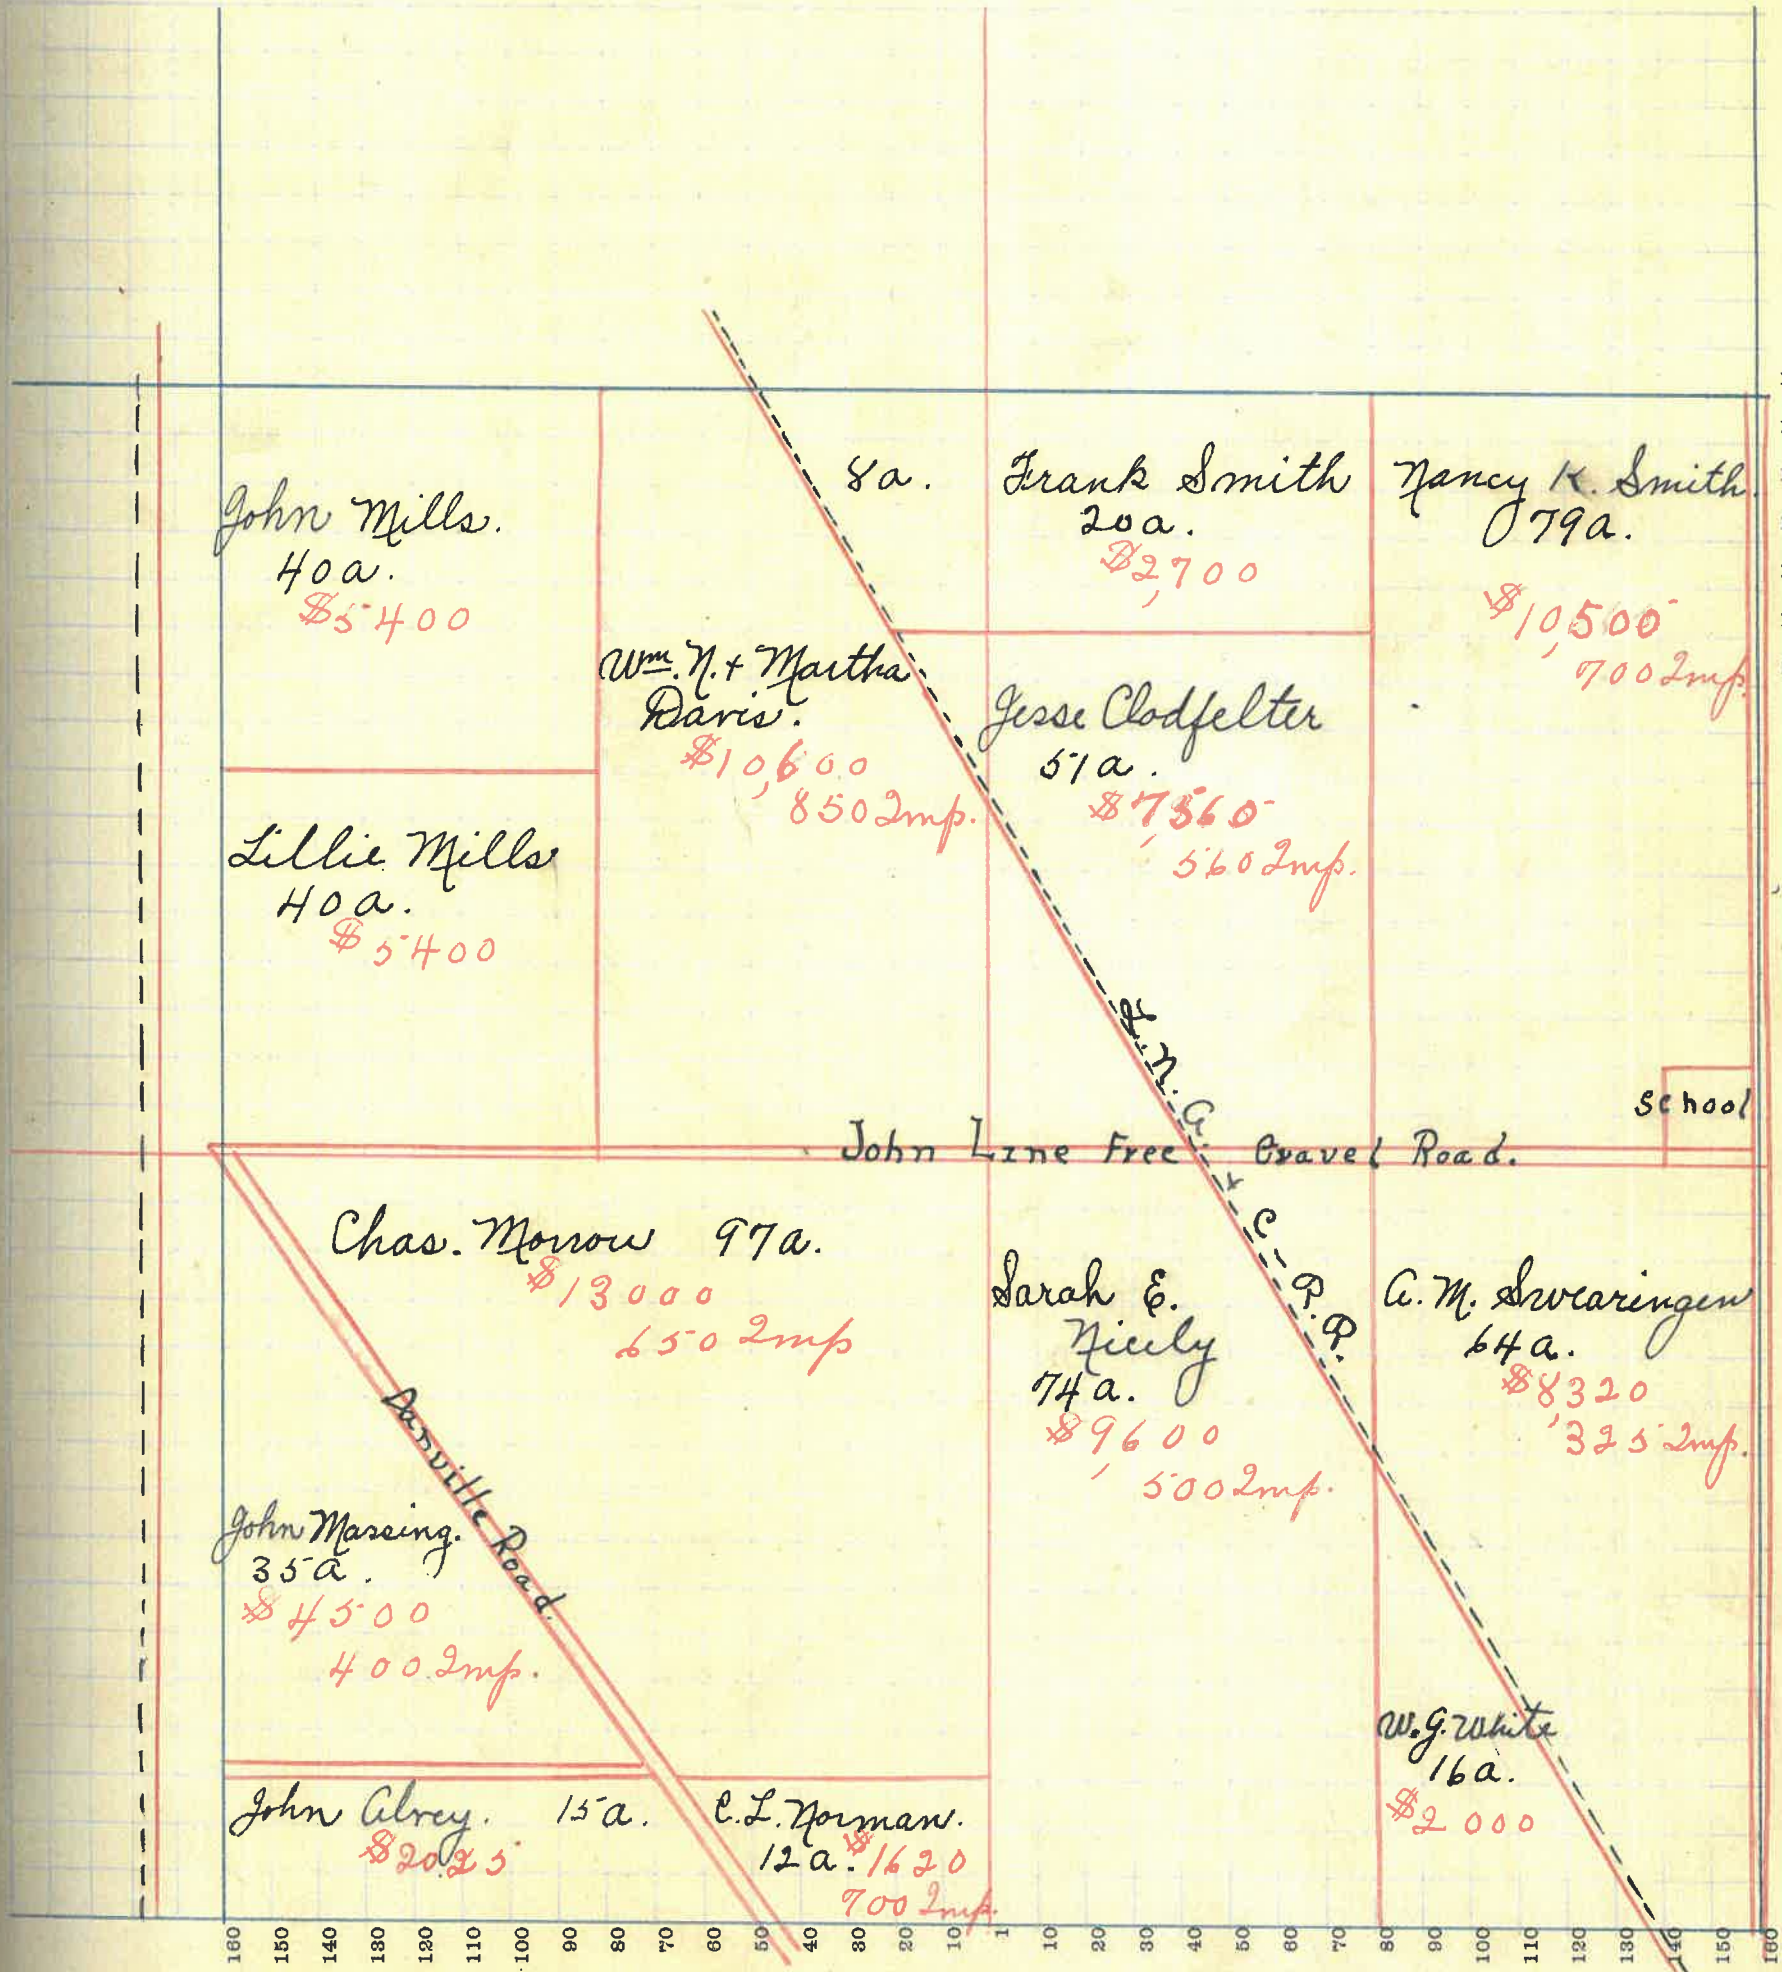 8a.
Frank Smith
20a.
$2,700
Nancy K. Smith.
79a.
$10,500
700 Imp.
John Mills.
40a.
$5400
Wm. N. + Martha
Davis.
$10,600
850 Imp.
Jesse Clodfelter
51a.
$7,560
560 Imp.
Lillie Mills
40a.
$5400
School
John Line Free Gravel Road.
Chas. Morrow 97a.
$13000
650 Imp
Danville Road.
Sarah E.
Nicely
74a.
$9,600
500 Imp.
A. M. Swearingen
64a.
$8,320
325 Imp.
John Massing.
35a.
$4500
400 Imp.
W. G. White
16a.
$2000
John Alvey. 15a.
$2025
C. L. Norman.
12a. $1620
700 Imp.
160 150 140 130 120 110 100 90 80 70 60 50 40 30 20 10 1 10 20 30 40 50 60 70 80 90 100 110 120 130 140 150 160